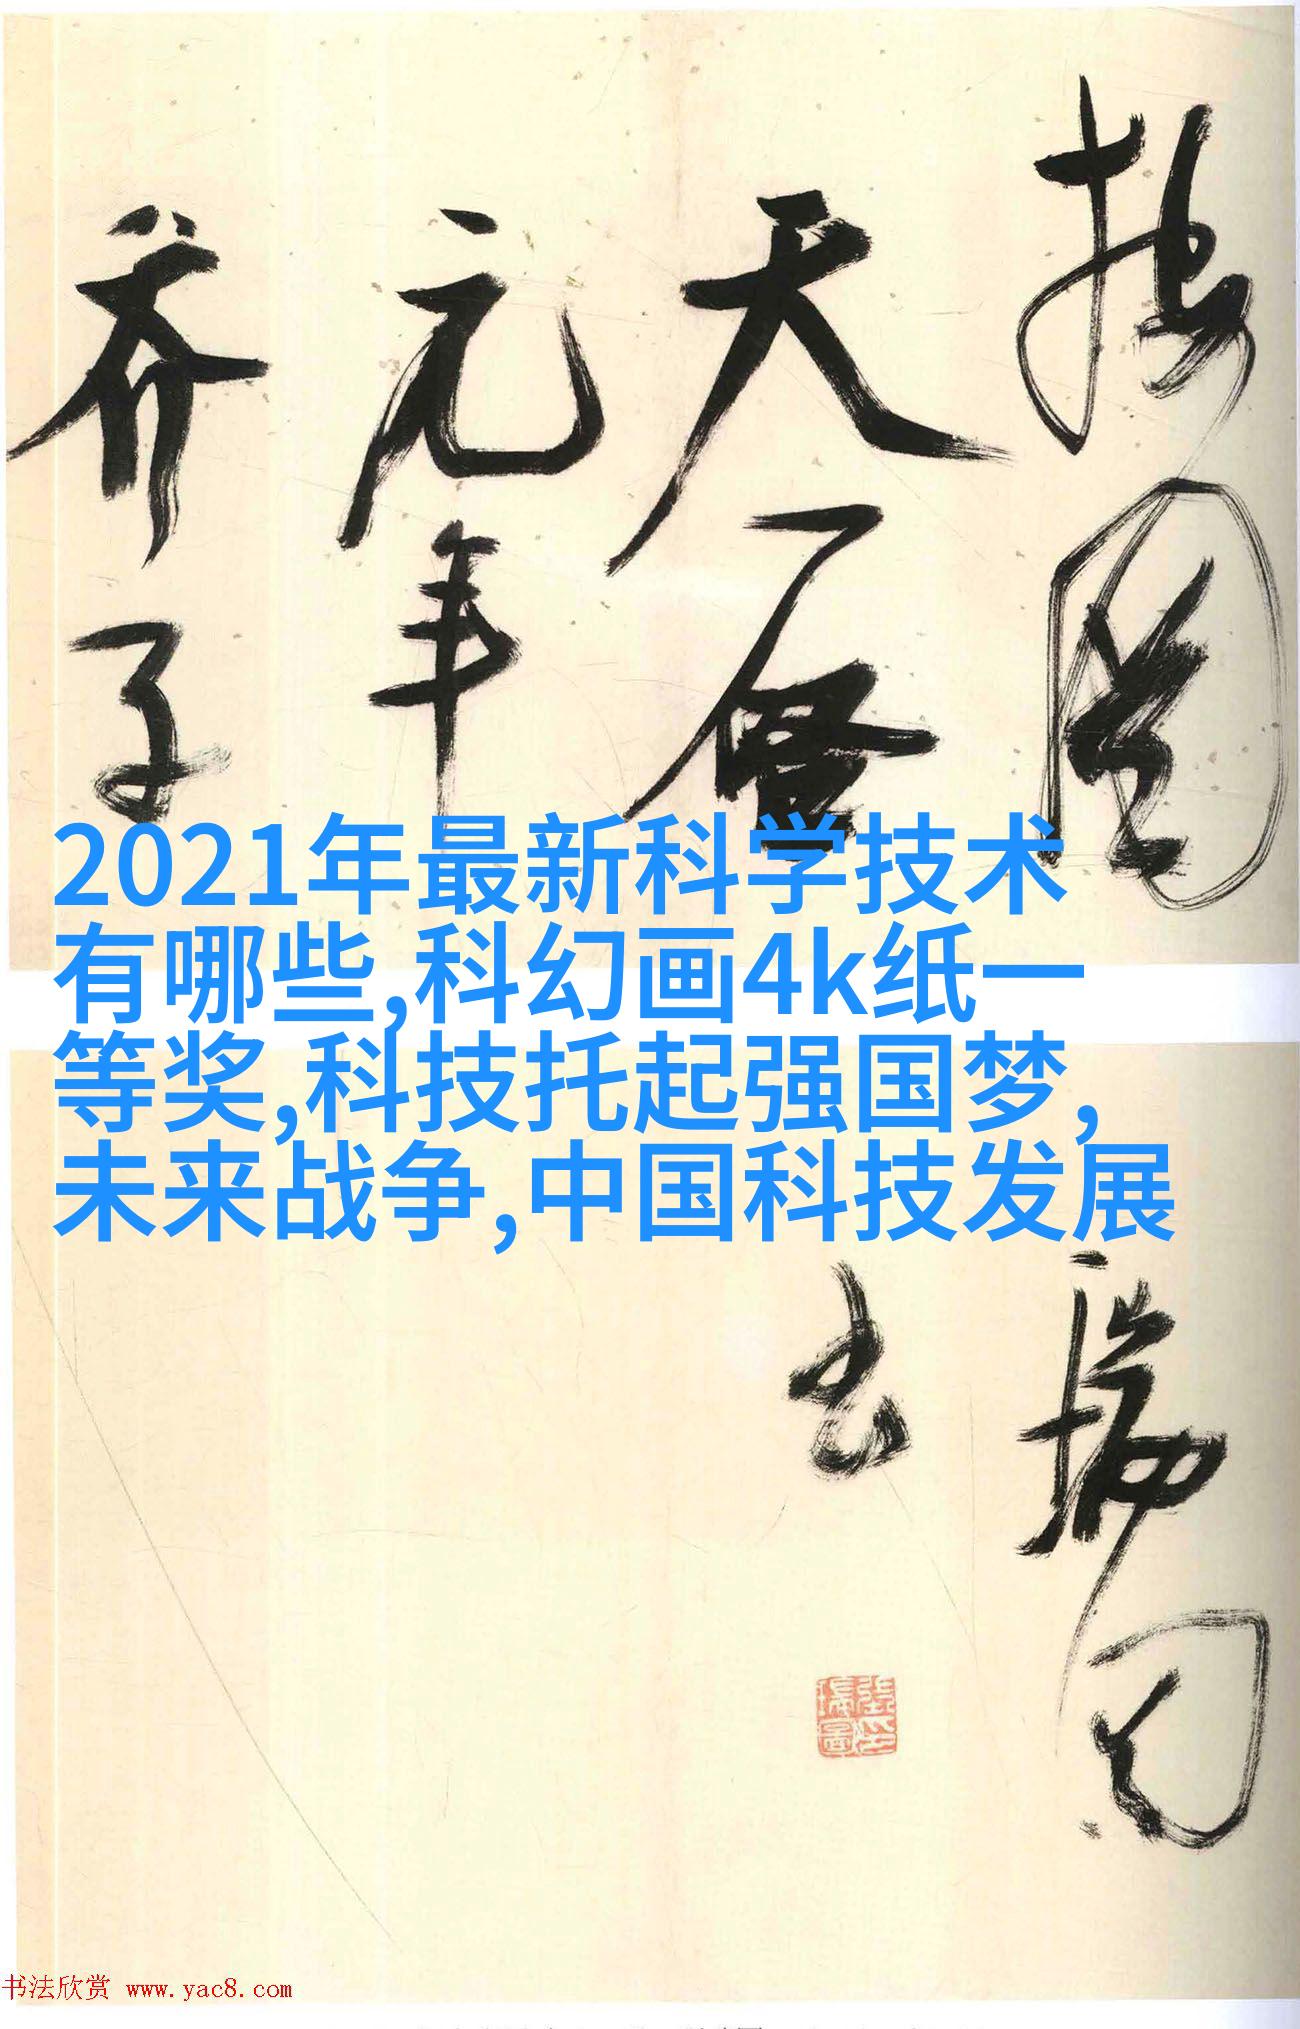 天啓
元年
2021年最新科学技术
有哪些,科幻画4k纸一
等奖,科技托起强国梦,
未来战争,中国科技发展
瑞圖
書
張瑞圖印
书法欣赏 www.yac8.com